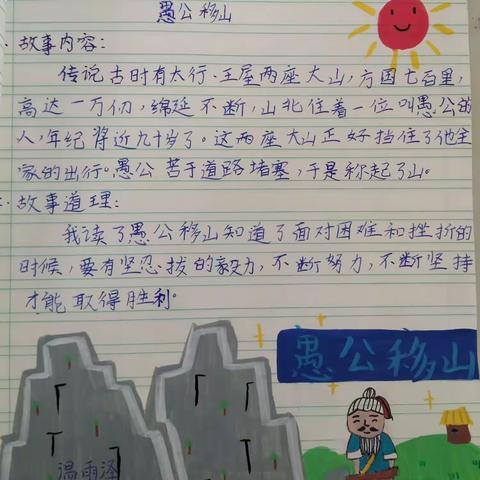 愚公移山
故事内容:
传说古时有太行、王屋两座大山,方圆七百里,
高达一万仞,绵延不断,山北住着一位叫愚公的
人,年纪将近九十岁了。这两座大山正好挡住了他全
家的出行。愚公苦于道路堵塞,于是称起了山。
故事道理:
我读了愚公移山知道了面对困难和挫折的
时候,要有坚忍拔的毅力,不断努力,不断坚持
才能取得胜利。
愚公移山
温雨泽